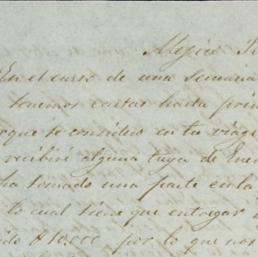 Mejico
En el curso de una semana
tenemos cartas hasta prin
que se considero en tu viage
recibiré alguna tuya de Ene
ha tomado una parte en la
lo cual tiene que entregar
$10.000 por lo que nos